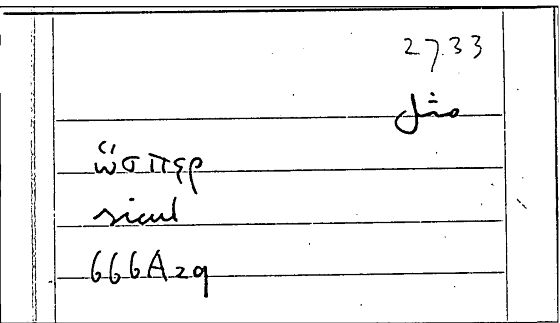 2733
مثل
ὥσπερ
sicut
666A29